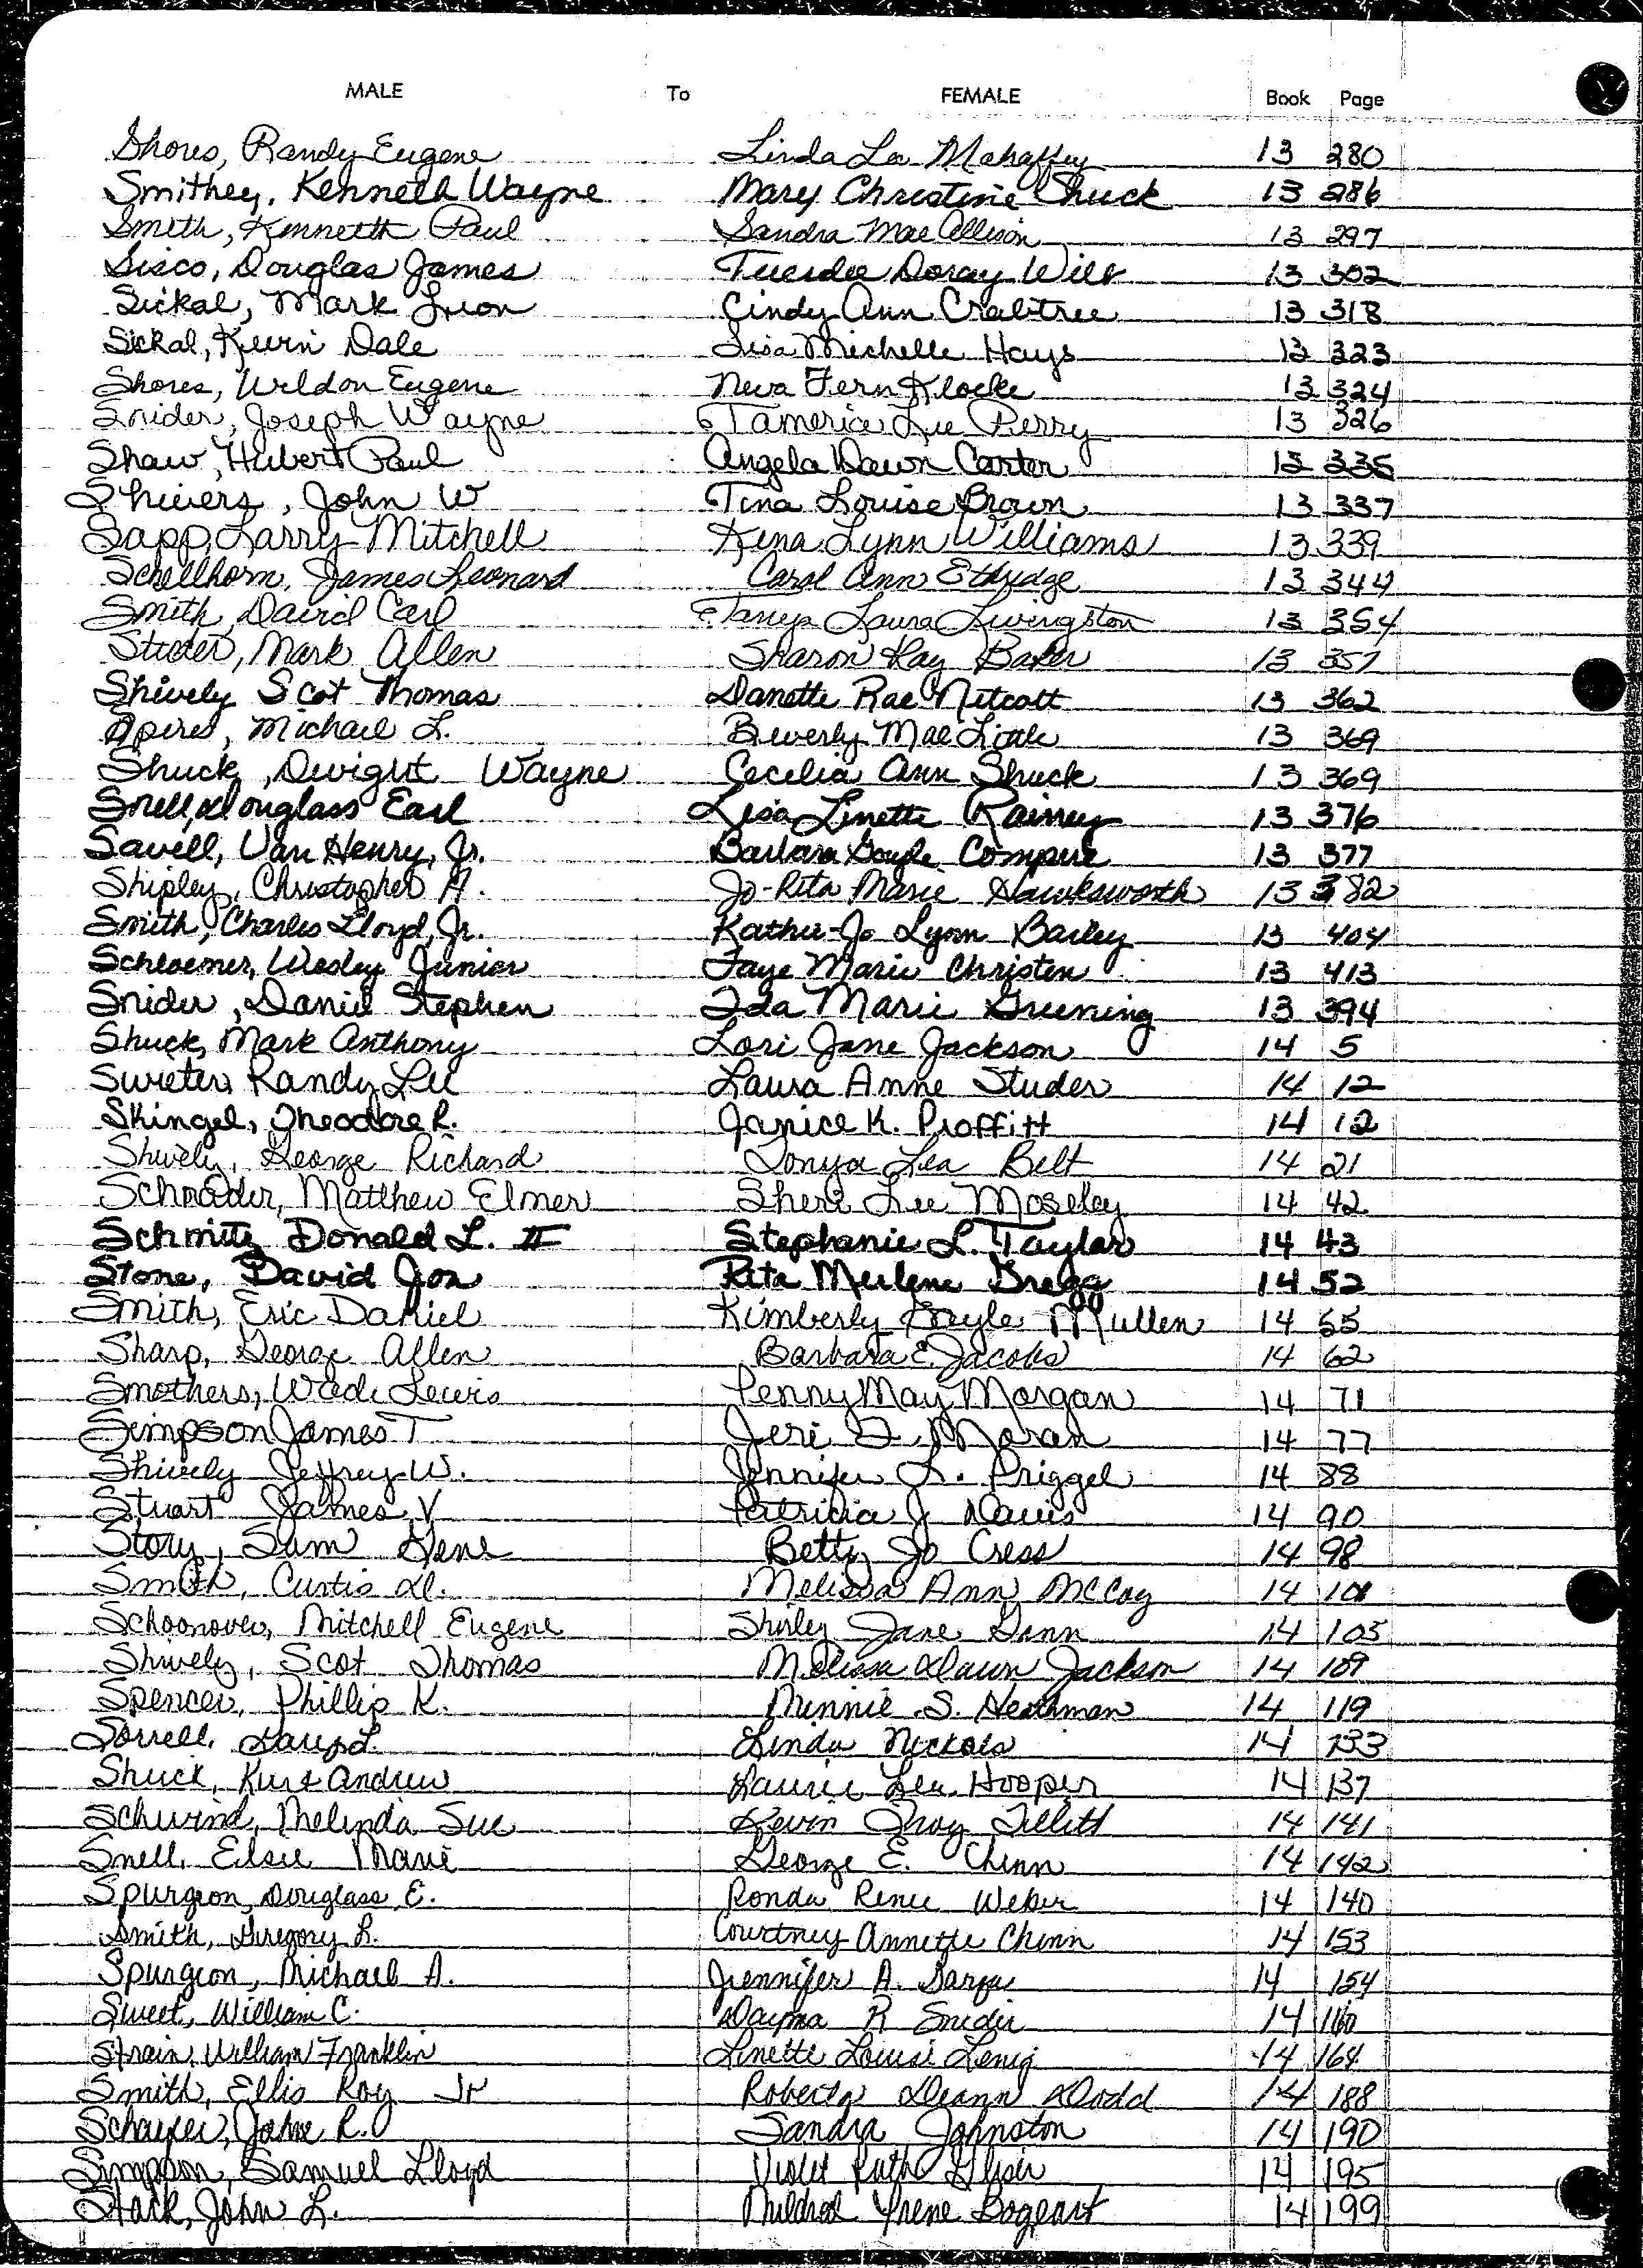 MALE To FEMALE Book Page
Shores, Randy Eugene Linda La Mahaffey 13 280
Smithey, Kenneth Wayne Mary Christine Shuck 13 286
Smith, Kenneth Paul Sandra Mae Allison 13 297
Sisco, Douglas James Doray 13 302
Sickal, Mark Leon Cindy Ann Crabtree 13 318
Sickal, Kevin Dale Lisa Michelle Hays 13 323
Shores, Weldon Eugene Neva Fern Klocke 13 324
Snider, Joseph Wayne Tameria Lee Perry 13 326
Shaw, Hubert Paul Angela Dawn Carter 13 335
Shivers, John W Tina Louise Brown 13 337
Sapp, Larry Mitchell Kena Lynn Williams 13 339
Schellhorn, James Leonard Carol Ann Ethridge 13 344
Smith, David Carl Tanya Laura Livingston 13 354
Studer, Mark Allen Sharon Kay Baker 13 357
Shively Scot Thomas Danette Rae Netcott 13 362
Spires, Michael L. Beverly Mae Little 13 369
Shuck, Dwight Wayne Cecelia Ann Shuck 13 369
Snell, Douglass Earl Lisa Linette Rainey 13 376
Savell, Van Henry, Jr. Barbara Gayle Compere 13 377
Shipley, Christopher A. Jo-Rita Marie Hawksworth 13 382
Smith, Charles Lloyd, Jr. Kathie-Jo Lynn Bailey 13 404
Schloemer, Wesley Junior Faye Marie Christen 13 413
Snider, Daniel Stephen Ida Marie Greening 13 394
Shuck, Mark Anthony Lori Jane Jackson 14 5
Sweeter, Randy Lee Laura Anne Studer 14 12
Skingel, Theodore R. Janice K. Proffitt 14 12
Shively, George Richard Tonya Lea Belt 14 21
Schrader, Matthew Elmer Sheri Lee Moseley 14 42
Schmitz Donald L. II Stephanie L. Taylor 14 43
Stone, David Jon Rita Merlene Gregg 14 52
Smith, Eric Daniel Kimberly Gayle Mullen 14 55
Sharp, George Allen Barbara E. Jacobs 14 62
Smothers, Wade Lewis Penny May Morgan 14 71
Simpson James T Jeri L. Moran 14 77
Shively Jeffrey W. Jennifer L. Priggel 14 88
Stuart James V Patricia J Davis 14 90
Story, Sam Gene Betty Jo Cress 14 98
Smith, Curtis D. Melissa Ann McCoy 14 101
Schoonover, Mitchell Eugene Shirley Jane Gann 14 105
Shively, Scot Thomas Melissa Dawn Jackson 14 109
Spencer, Phillip K. Minnie S. Heathman 14 119
Sorrell, L. Linda Nickols 14 133
Shuck, Kurt Andrew Laurie Lea Hooper 14 137
Schwind, Melinda Sue Kevin Troy Tillitt 14 141
Snell, Elsie Marie George E. Chinn 14 142
Spurgeon, Douglass E. Ronda Renee Weber 14 140
Smith, Gregory L. Courtney Annette Chinn 14 153
Spurgeon, Michael A. Jennifer A. Garza 14 154
Sweet, William C. Dayma R Snider 14 160
Strain, William Franklin Linette Louise Lenig 14 164
Smith, Ellis Roy Jr Roberta Deann Dodd 14 188
Schaefer, John R. Sandra Johnston 14 190
Simpson, Samuel Lloyd Violet Ruth 14 195
Stack, John L. Mildred Irene Bogeart 14 199